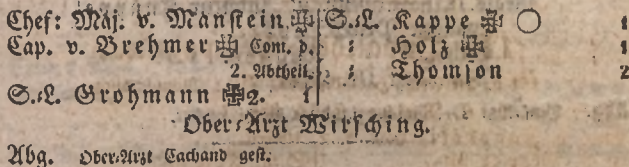 Chef: Maj. v. Manstein ✠
Cap. v. Brehmer ✠ Com. d.
2. Abtheil.
S.:L. Grohmann ✠ 2. 1
S.:L. Kappe ✠ ○ 1
: Holz ✠ 1
: Thomson 2
Ober:Arzt Wirsching.
Abg. Ober:Arzt Cachand gest.